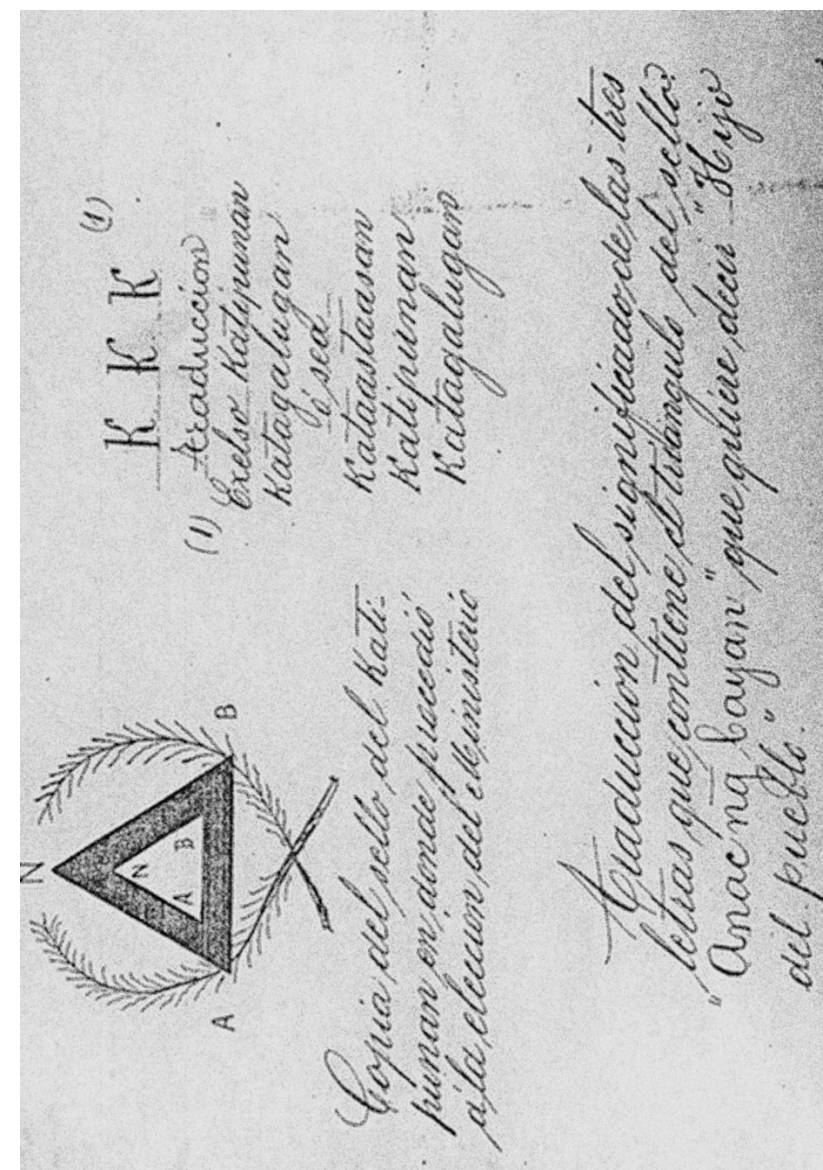 K K K (1)
Traduccion
(1) Exelso Katipunan
Katagalugan
ó sea
Kataastaasan
Katipunan
Katagalugan
N
A
B
N
A
B
Copia del sello del Kati-
punan en donde procedió
á la eleccion del Ministerio
Traduccion del significado de las tres
letras que contiene el triángulo del sello.
"Anac ng bayan" que quiere decir "Hijo
del pueblo."